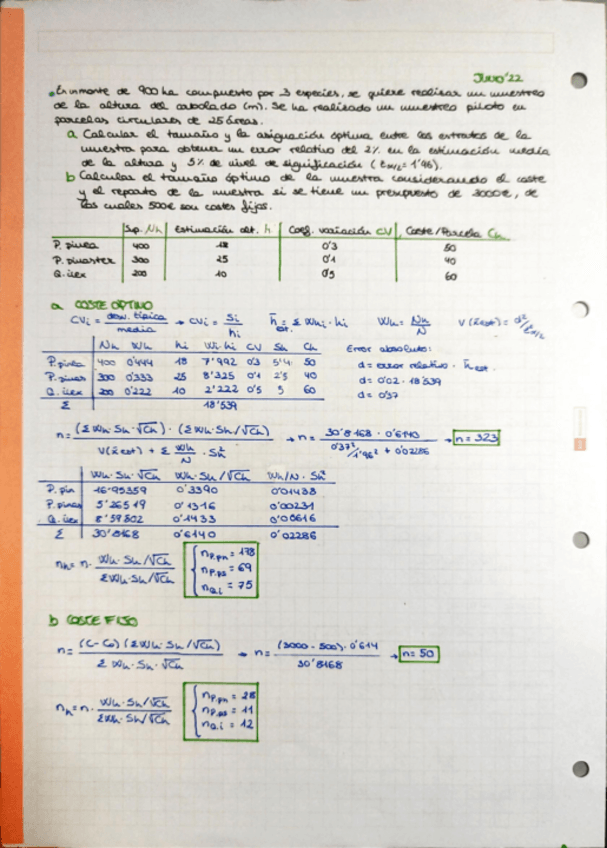 JUNIO'22
• En un monte de 900 ha compuesto por 3 especies, se quiere realizar un muestreo
de la altura del arbolado (m). Se ha realizado un muestreo piloto en
parcelas circulares de 25 áreas.
a Calcular el tamaño y la asignación óptima entre los estratos de la
muestra para obtener un error relativo del 2% en la estimación media
de la altura y 5% de nivel de significación (tα/2=1'96).
b Calcular el tamaño óptimo de la muestra considerando el coste
y el reparto de la muestra si se tiene un presupuesto de 3000€, de
los cuales 500€ son costes fijos.
Sup. Nh Estimación alt. h Coef. variación CV Coste/Parcela Ch
P. pinea 400 18 0'3 50
P. pinaster 300 25 0'1 40
Q. ilex 200 10 0'5 60
a COSTE ÓPTIMO
CVi = desv. típica / media → CVi = Si / hi h̄ est. = Σ Whi · hi Wh = Nh / N V(x̄est) = d² / t²α/2
Nh Wh hi Wi·hi CV Sh Ch Error absoluto:
P. pinea 400 0'444 18 7'992 0'3 5'4 50 d = error relativo · h̄ est.
P. pinas 300 0'333 25 8'325 0'1 2'5 40 d = 0'02 · 18'539
Q. ilex 200 0'222 10 2'222 0'5 5 60 d = 0'37
Σ 18'539
n = (Σ Wh · Sh · √Ch) · (Σ Wh · Sh / √Ch) / V(x̄est) + Σ Wh / N · Sh² → n = 30'8168 · 0'6140 / 0'37² / 1'96² + 0'02286 → n = 323
Wh · Sh · √Ch Wh · Sh / √Ch Wh/N · Sh²
P. pin 16'95359 0'3390 0'01438
P. pinas 5'26519 0'1316 0'00231
Q. ilex 8'59802 0'1433 0'00616
Σ 30'8168 0'6140 0'02286
nh = n · Wh · Sh / √Ch / Σ Wh · Sh / √Ch { nP.pn = 178
nP.ps = 69
nQ.i = 75
b COSTE FIJO
n = (C - C0) (Σ Wh · Sh / √Ch) / Σ Wh · Sh · √Ch → n = (3000 - 500) · 0'614 / 30'8168 → n = 50
nh = n · Wh · Sh / √Ch / Σ Wh · Sh / √Ch { nP.pn = 28
nP.ps = 11
nQ.i = 12